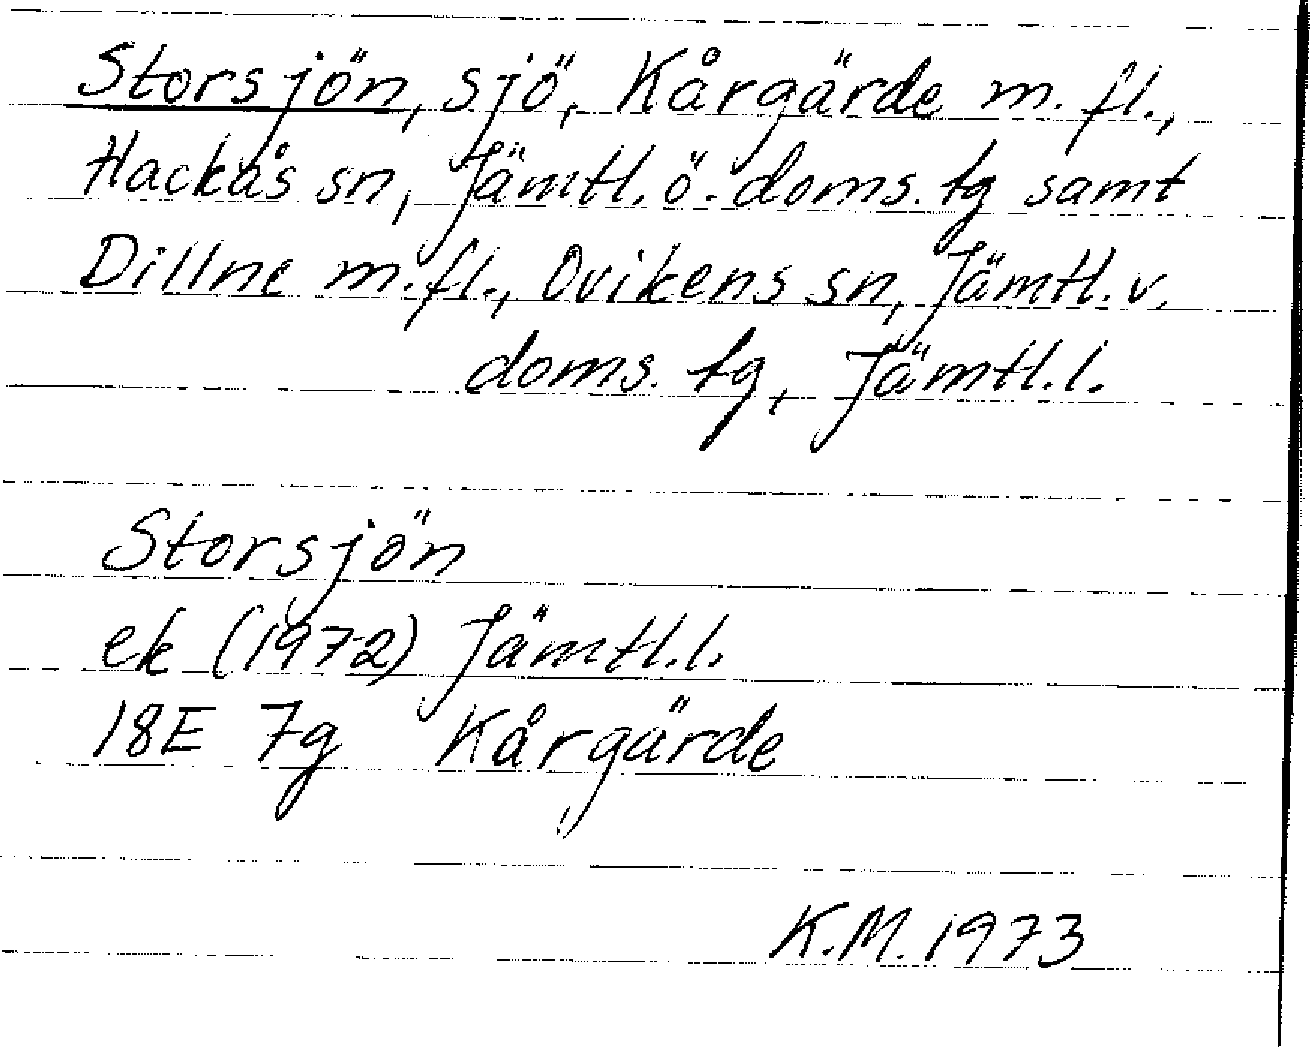 Storsjön, sjö, Kårgärde m. fl.,
Hackås sn, Jämtl. ö. doms. tg samt
Dillne m. fl., Ovikens sn, Jämtl. v.
doms. tg, Jämtl. l.
Storsjön
ek (1972) Jämtl. l.
18E 7g Kårgärde
K.M. 1973